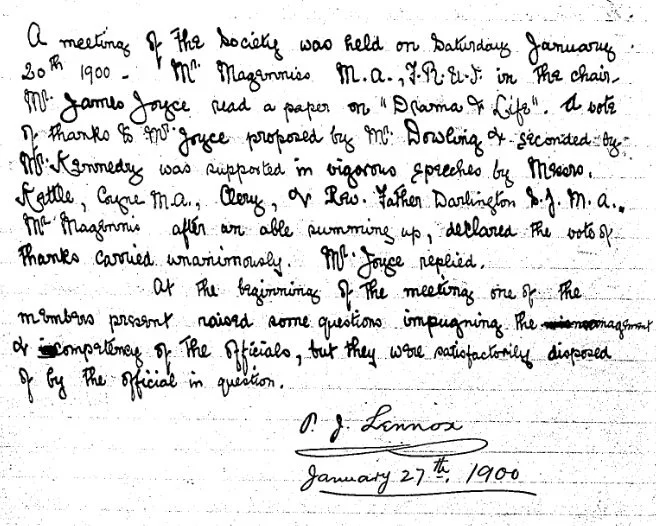 A meeting of the Society was held on Saturday January
20th 1900 - Mr. Magennis M.A., F.R.U.I. in the chair -
Mr. James Joyce read a paper on "Drama & Life". A vote
of thanks to Mr. Joyce proposed by Mr. Dowling & seconded by
Mr. Kennedy was supported in vigorous speeches by Messrs.
Kettle, Coyne M.A., Clery, & Rev. Father Darlington S.J. M.A..
Mr Magennis after an able summing up, declared the vote of
thanks carried unanimously. Mr. Joyce replied.
At the beginning of the meeting one of the
members present raised some questions impugning the management
& competency of the officials, but they were satisfactorily disposed
of by the official in question.
P. J. Lennox
January 27th, 1900